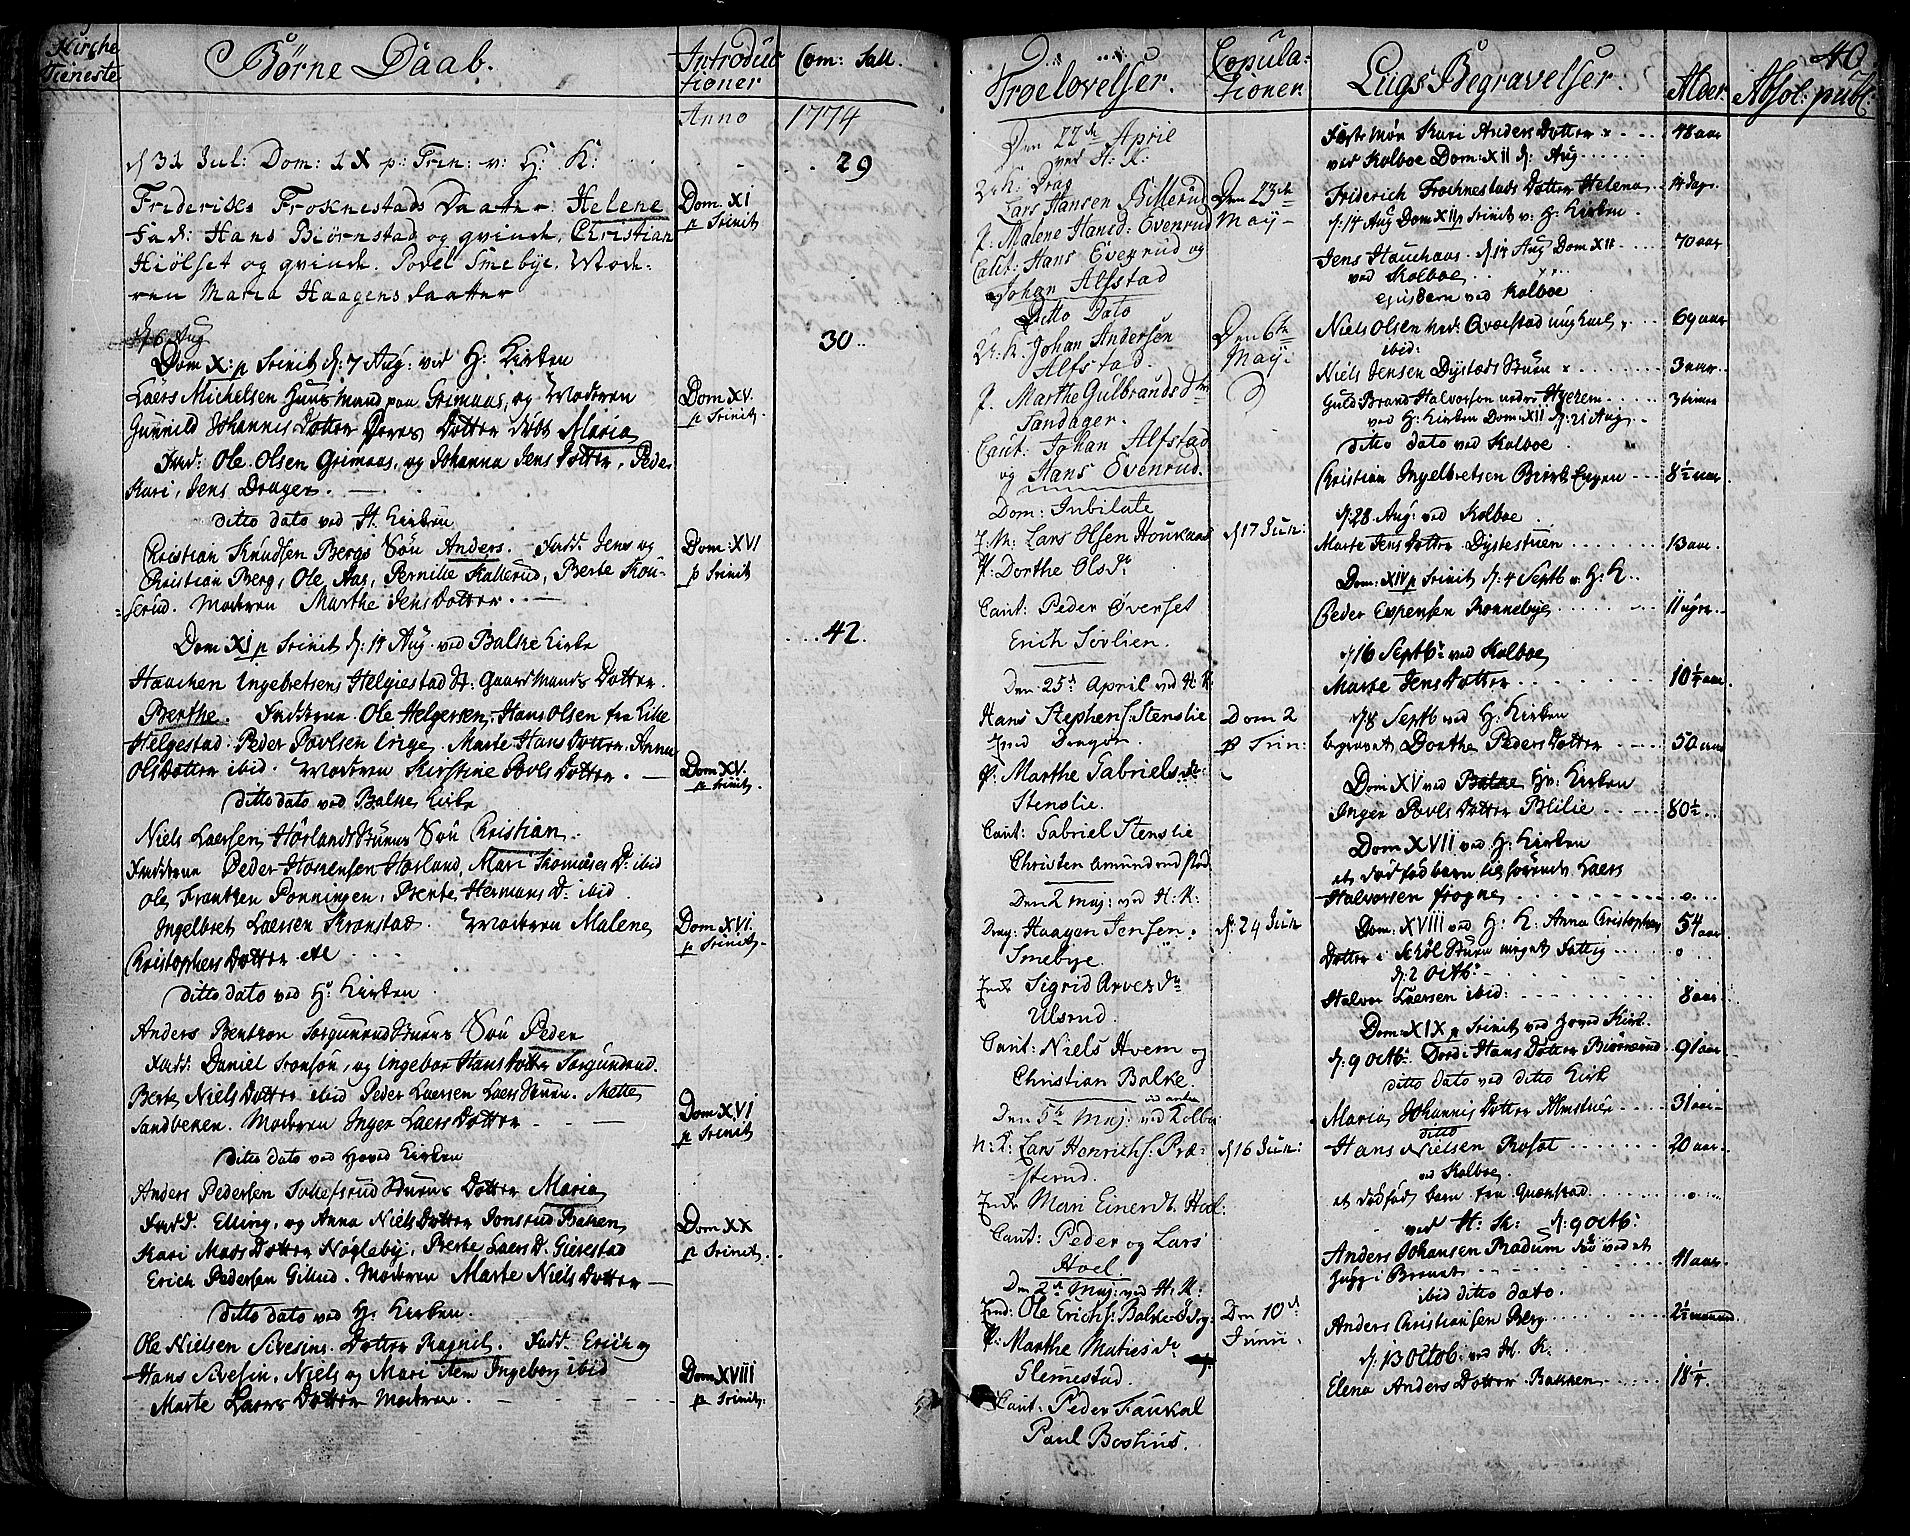 Kirche
Tieneste
Børne Daab.
Introduc
tioner
Com: Sall.
Anno 1774
d 31 Jul: Dom: IX p: Trin: v: H: K:
29
Friderikes Froknestads Daatter Helene
Fad: Hans Biørnstad og qvinde, Christian
Hiølset og qvinde. Povel Smebye. Mode-
ren Maria Haagens Daatter
Dom. XI
p Trinit
d 6 Aug
Dom X: p Trinit d: 7 Aug: ved H: Kirken
30
Laers Michelsen Huusmand paa Grimaas, og Moderen
Gunnild Johannis Dotter Deres Dotter døbt Maria
Fad: Ole Olsen Grimaas, og Johanna Jens Dotter, Peder
Kari, Jens Drager.
Dom XV.
p Trinit.
ditto dato ved H. Kirken
Christian Knudsen Bergs Søn Anders. Fadd. Jens og
Christian Berg, Ole Aas, Pernille Kallerud, Berte Kou-
serud. Moderen Marthe Jens Dotter.
Dom: XVI
p Trinit
Dom XI p Trinit d: 14 Aug. ved Balke Kirke
42.
Haachen Ingebretsens Helgiestad St: Gaardmands Dotter
Berthe. Fadderne Ole Helgersen, Hans Olsen fra Lille
Helgestad: Peder Povlsen Unge, Marte Hans Dotter, Anna
Ols Dotter ibid. Moderen Kirstine Povls Dotter.
Dom XV.
p Trinit.
Ditto dato ved Balke Kirke
Niels Laersen Hørlands Søn Christian.
Fadderne Peder Hovensen Hørland, Mari Thomæses D: ibid
Ole Frantzen Ponningen, Berte Hermans D: ibid.
Ingelbret Laersen Kronstad. Moderen Malene
Christophers Dotter etc
Dom XVI.
p Trinit.
Ditto dato ved H: Kirken.
Anders Bentzon Sørgunrud Søn Peder
Fadd: Daniel Tronson, og Ingebor Hans Dotter Sørgunrud.
Berte Niels Dotter ibid Peder Laersen Laers Stuen. Mette
Sandbeken. Moderen Inger Laers Dotter
Dom XVI
p Trinit
Ditto dato ved Hoved Kirken
Anders Pedersen Dotter Maria
Fadd. Elling, og Anna Niels Dotter Jonsrud Bakken
Kari Mads Dotter Nøgleby, Berte Laers D. Gierestad
Erich Pedersen Gilund. Moderen Marte Niels Dotter
Dom XX
p Trinit.
Ditto dato ved H: Kirken.
Ole Nielsen Sivesins Dotter Ragnil. Fadd. Erich og
Hans Sivesin, Niels og Mari item Ingeborg ibid
Marte Laers Dotter Moderen.
Dom XVIII
p Trinit:
Troelovelser.
Copula-
tionen
Den 22de April
ved H: K:
Drag
Lars Hansen Billerud
P: Malene Hansd: Evenrud
Caut: Hans Evenrud og
Johan Alfstad
Den 23de
Maij
Ditto Dato
Johan Andersen
Alfstad.
P. Marthe Gulbrands Dtr
Sandager.
Caut: Johan Alfstad
og Hans Evenrud.
Den 6te
Maji
Dom: Jubilate
Lars Olsen Houkaas
P: Dorthe Olsdr
Caut: Peder Øverset
Erich Sørlien.
d 17 Jun:
Den 25de April ved H. K
Hans Stephens: Stenslie
Dragon.
P: Marthe Gabrielsdr:
Stenslie.
Caut: Gabriel Stenslie
Christen Amundrudstad
Dom 2
p Trin:
Den 2 Maj: ved H. K:
Drag: Haagen Jensen.
Smebye.
Sigrid Arvesdr
Ulsrud.
Caut: Niels Hvem og
Christian Balke.
d: 24 Jun
Den 5te Maj: ved Kolbu
Lars Henrichs: Præ-
sterud.
Mari Einersdt. Hoel:
Caut: Peder og Lars
Hoel
d 16 Jun:
Den 2de Maj: ved H: K:
Ole Erichs: Balke
P: Marthe Matiesdr
Elemestad.
Caut: Peder Faukal
Paul Boshus.
Den 10de
Junii.
Liigs Begravelser.
Alder
Absol: publ:
40
Mari Anders Dotter
ved Kolboe Dom: XII d: Aug
48 aar
Friderich Frochnestads Dotter Helena
d: 14 Aug Dom XI p Trinit v: H: Kirken.
14 dage
Jens Hauchaas. d: 14 Aug Dom XII
ved Kolboe
70 aar
ejusdem ved Kolboe
Niels Olsen ved: Qvæstad
ibid:
69 aar
Niels Jensen Dystads Stuen
3 aar.
Guld Brand Halvorsen nedre Hverem
ved H: Kirken Dom: XII d: 21 Aug
3 timer
ditto dato ved Kolboe
Christian Ingelbretsen Birch Engen
8½ aar
d: 28 Aug: ved Kolboe
Marte Jens Dotter Dystestuen
13 aar.
Dom: XIV p Trinit d: 4 Septb v: H: K.
Peder Espensen Rønnebye
11 uger
d 16 Septb: ved Kolboe
Marte Jens Dotter
10½ aar
d 8 Septb ved H: Kirken
begravet Dorthe Peders Dotter
50 aar
Dom XV ved Balke Hv: Kirken
Inger Povls Dotter Blilie
80½
Dom XVII ved H: Kirken
et dødfød barn tilhørende Laers
Halvorsen frogne
0
Dom: XVIII ved H: K. Anna Christophers
Dotter i Stuen meget fattig
54 aar
d: 2 Octb:
Halvor Laersen ibid:
8 aar
Dom: XIX p Trinit ved Hoved Kirk.
d: 9 Octb: Dordi Hans Dotter Biørnerud
91 aar
ditto dato ved ditto Kirk
Maria Johannis Dotter Almstuen
31 aar
ditto
Hans Nielsen Rosset
20 aar.
ved Kolboe
et dødfød barn fra Quærstad
0
ved H: K: d: 9 Octb:
Anders Johansen Radum død ved at
41 aar
ibid ditto dato.
Anders Christiansen Berg
2½ maaned
d: 13 Octob: ved H. K.
Elena Anders Dotter Bakken
18¼